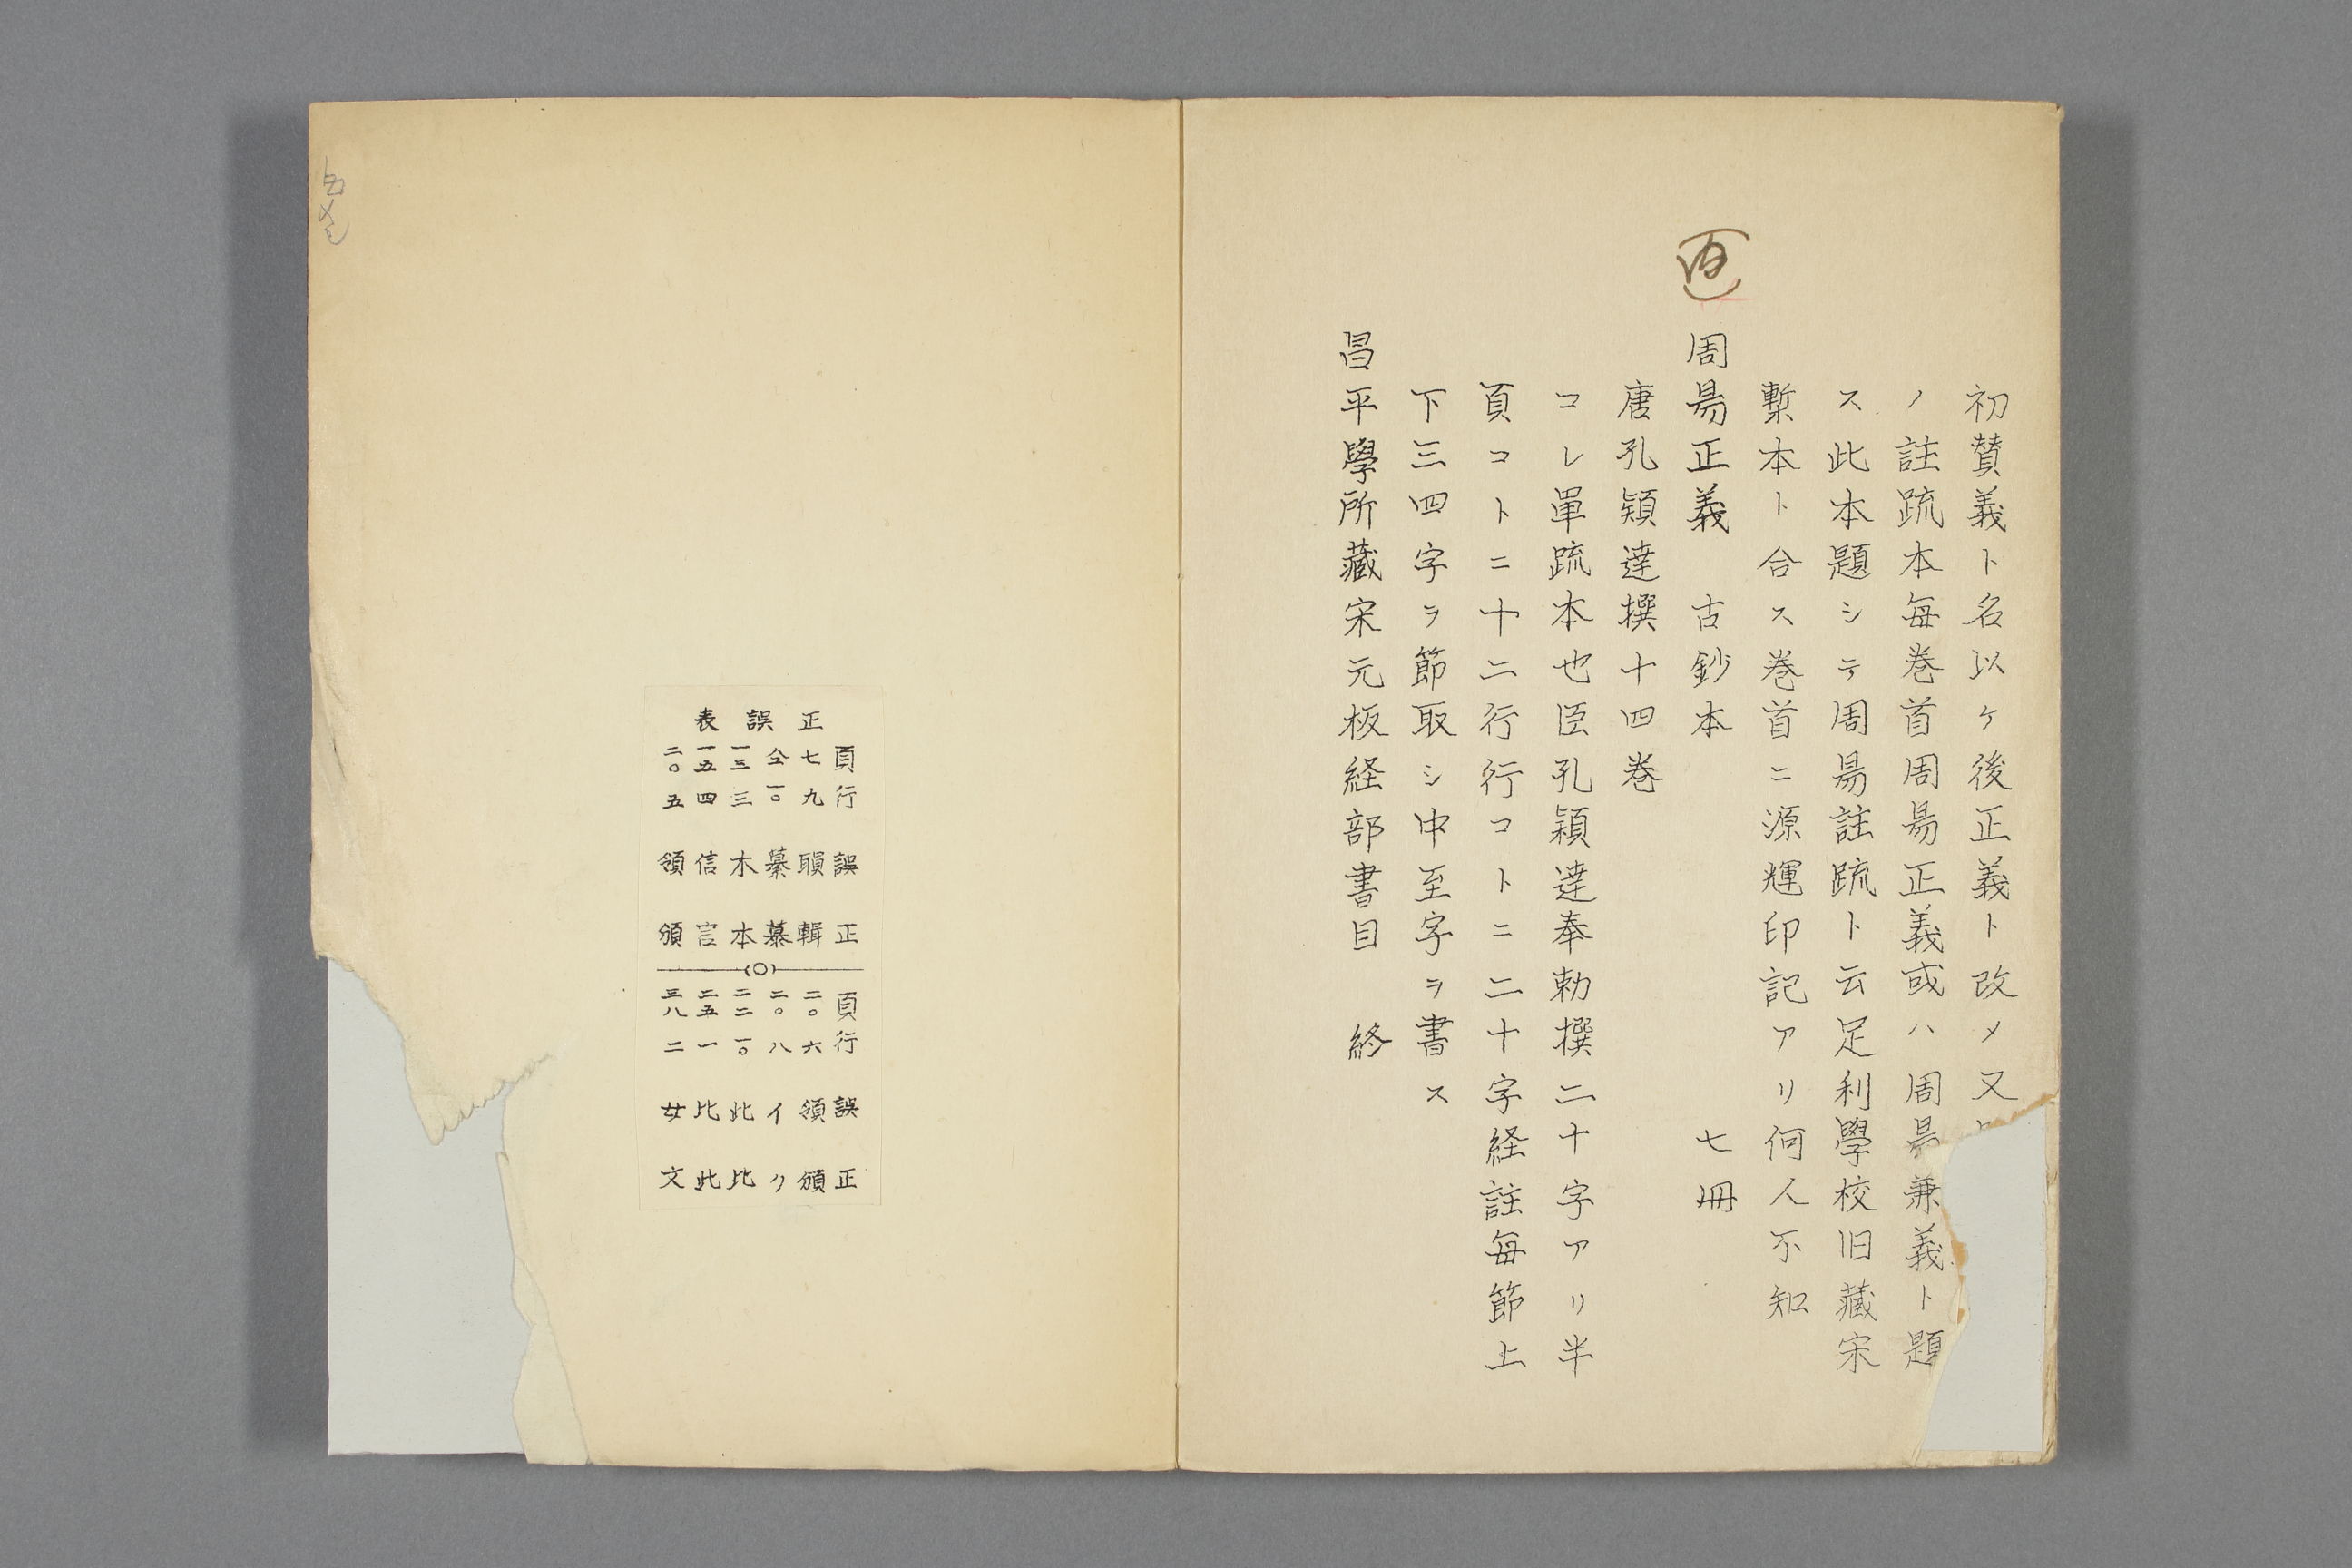 初賛義ト名以ケ後正義ト改メ又
ノ註疏本毎巻首周昜正義或ハ周昜兼義ト題
ス此本題シテ周昜註疏ト云足利學校旧藏宋
槧本ト合ス巻首ニ源輝印記アリ何人不知
周昜正義　古鈔本　七冊
唐孔穎達撰十四巻
コレ單疏本也臣孔穎達奉勅撰二十字アリ半
頁コトニ十二行行コトニ二十字経註毎節上
下三四字ヲ節取シ中至字ヲ書ス
昌平學所藏宋元板経部書目　終
正誤表
頁 行 誤 正
七 九 聭 輯
仝 一〇 綦 慕
一三 三 木 本
一五 四 信 言
二〇 五 領 頒
頁 行 誤 正
二〇 六 領 頒
二〇 八 イ リ
二二 一〇 此 比
二五 一 比 此
三八 二 女 文